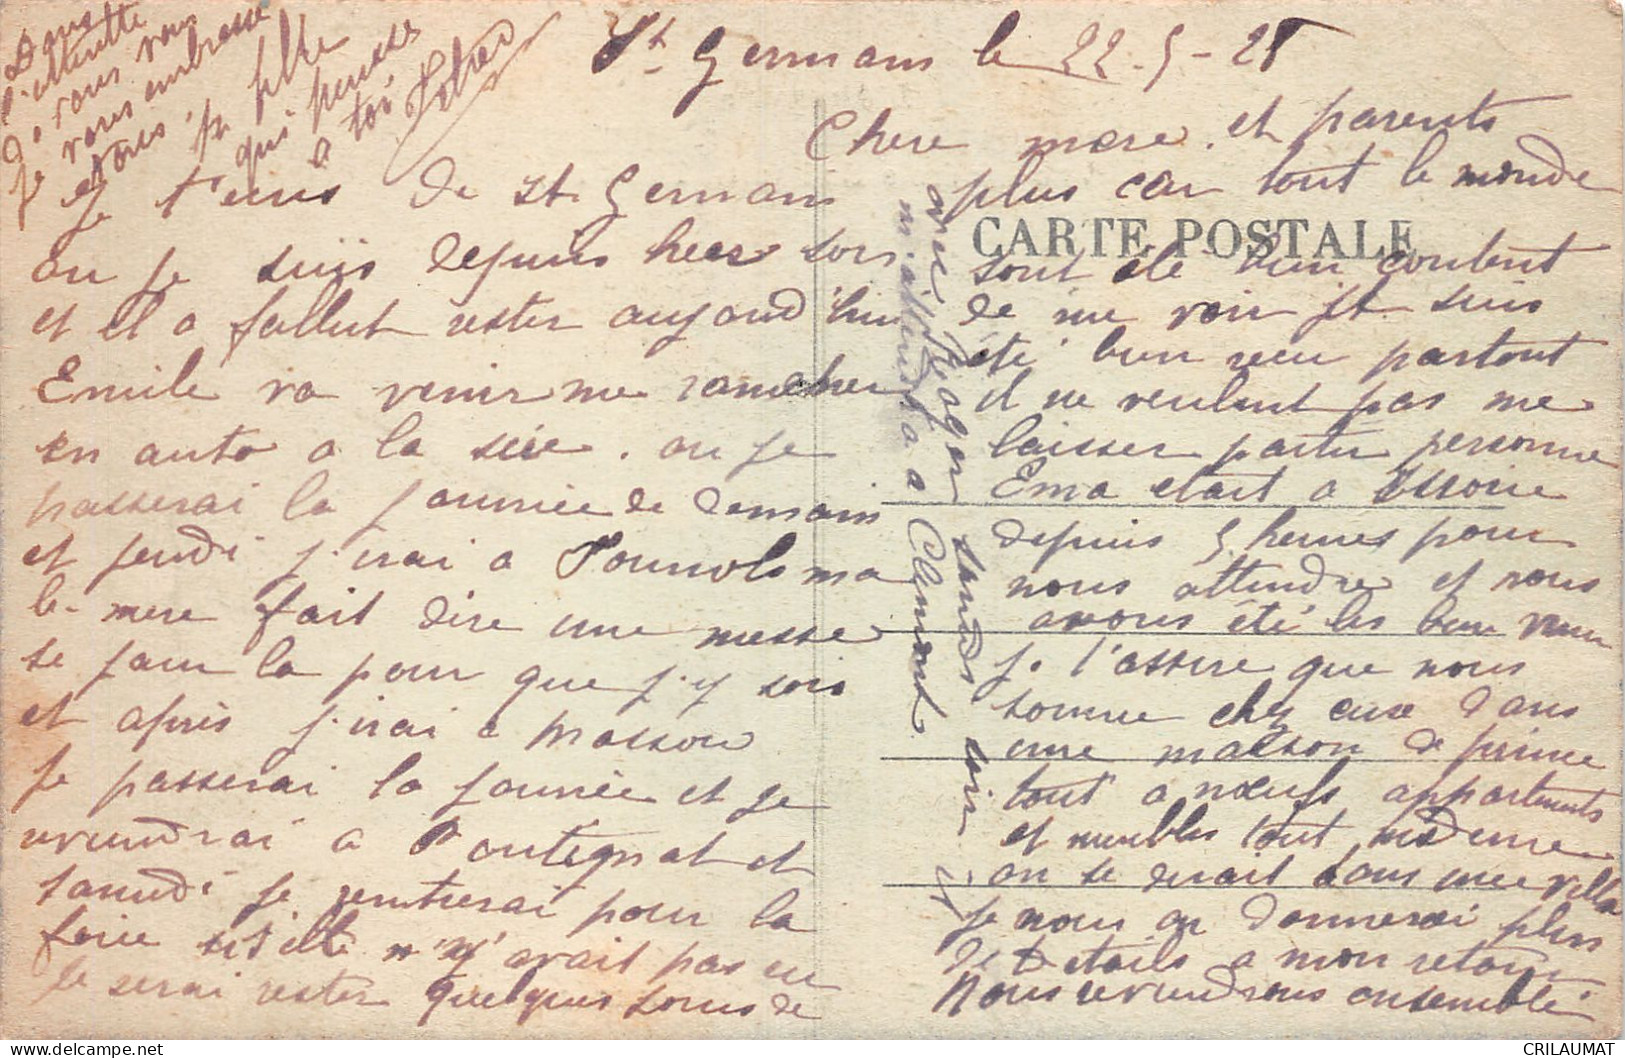 St Germain le 22-5-28
Chere mere et parents
Je t'ecris de St Germain
ou je suis depuis hier soir
et il a fallut rester aujourd'hui
Emile va venir me rancher
en auto a la seie. ou je
passerai la journée de demain
et jeudi j'irai a ma
b- mere fait dire une messe
se jour la pour que j'y sois
et après j'irai a Masson
je passerai la journée et je
reviendrai a Pontignat et
samedi je rentrerai pour la
foire si elle n'y avait pas eu
je serai rester quelques jours de
plus car tout le monde
CARTE POSTALE
sont été bien content
de me voir je suis
été bien reçu partout
il ne veulent pas me
laisser partir personne
Ema etait a Issoire
depuis 5 heures pour
nous attendre et nous
avons été les bien venu
je t'assure que nous
somme chez eux dans
une maison de prince
tout a noeufs appartements
et meubles tout moderne
on se dirait dans une villa
je vous donnerai plus
de details a mon retour
Nous reviendrons ensemble
avec Roger samedi soir il
m'attendra a Clermont
Dans
l'attente
de vous voir
je vous embrasse
et tous, ta fille
qui penses
a toi
CRILAUMAT